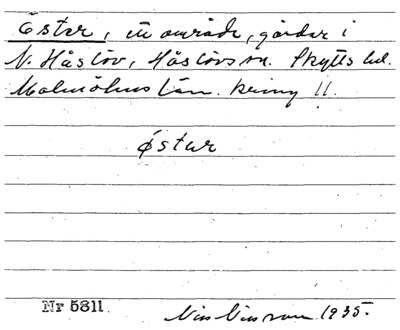 Öster, ett område, gårdar i
N. Håslöv, Håslövs sn. Skytts hd.
Malmöhus län. kring 11.
østər
Nr 5811.
Nils Nilsson 1935.